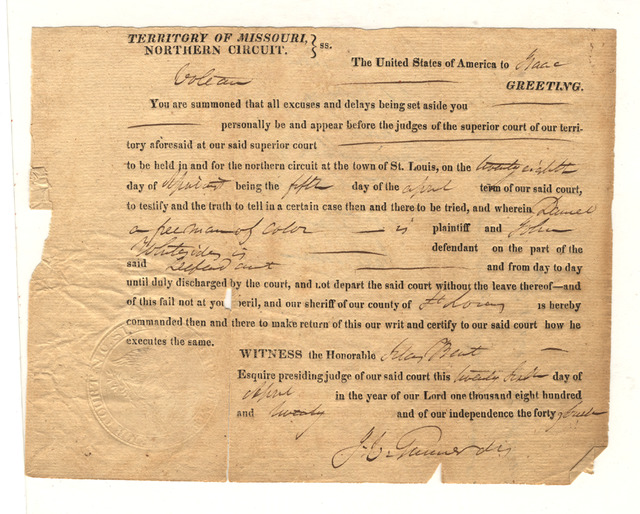 TERRITORY OF MISSOURI,
NORTHERN CIRCUIT. } ss.
The United States of America to Isaac
GREETING.
You are summoned that all excuses and delays being set aside you
personally be and appear before the judges of the superior court of our terri-
tory aforesaid at our said superior court
to be held in and for the northern circuit at the town of St. Louis, on the twenty eighth
day of April inst being the fifth day of the april term of our said court,
to testify and the truth to tell in a certain case then and there to be tried, and wherein Daniel
a free man of color — is plaintiff and John
Whitesides is defendant on the part of the
said Defendant and from day to day
until duly discharged by the court, and not depart the said court without the leave thereof—and
of this fail not at you peril, and our sheriff of our county of St Louis is hereby
commanded then and there to make return of this our writ and certify to our said court how he
executes the same.
WITNESS the Honorable Silas Bent
Esquire presiding judge of our said court this twenty day of
April in the year of our Lord one thousand eight hundred
and twenty and of our independence the forty fourth